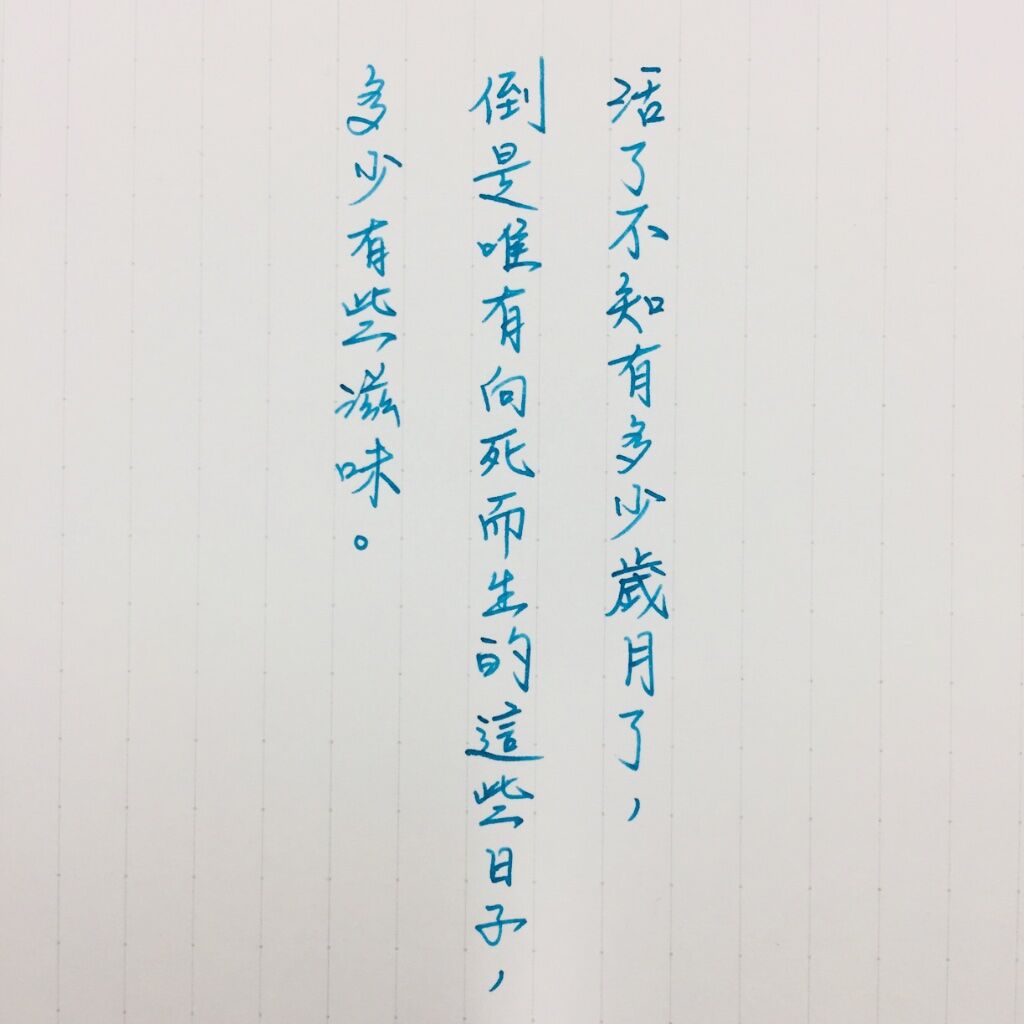 活了不知有多少歲月了，
倒是唯有向死而生的這些日子，
多少有些滋味。